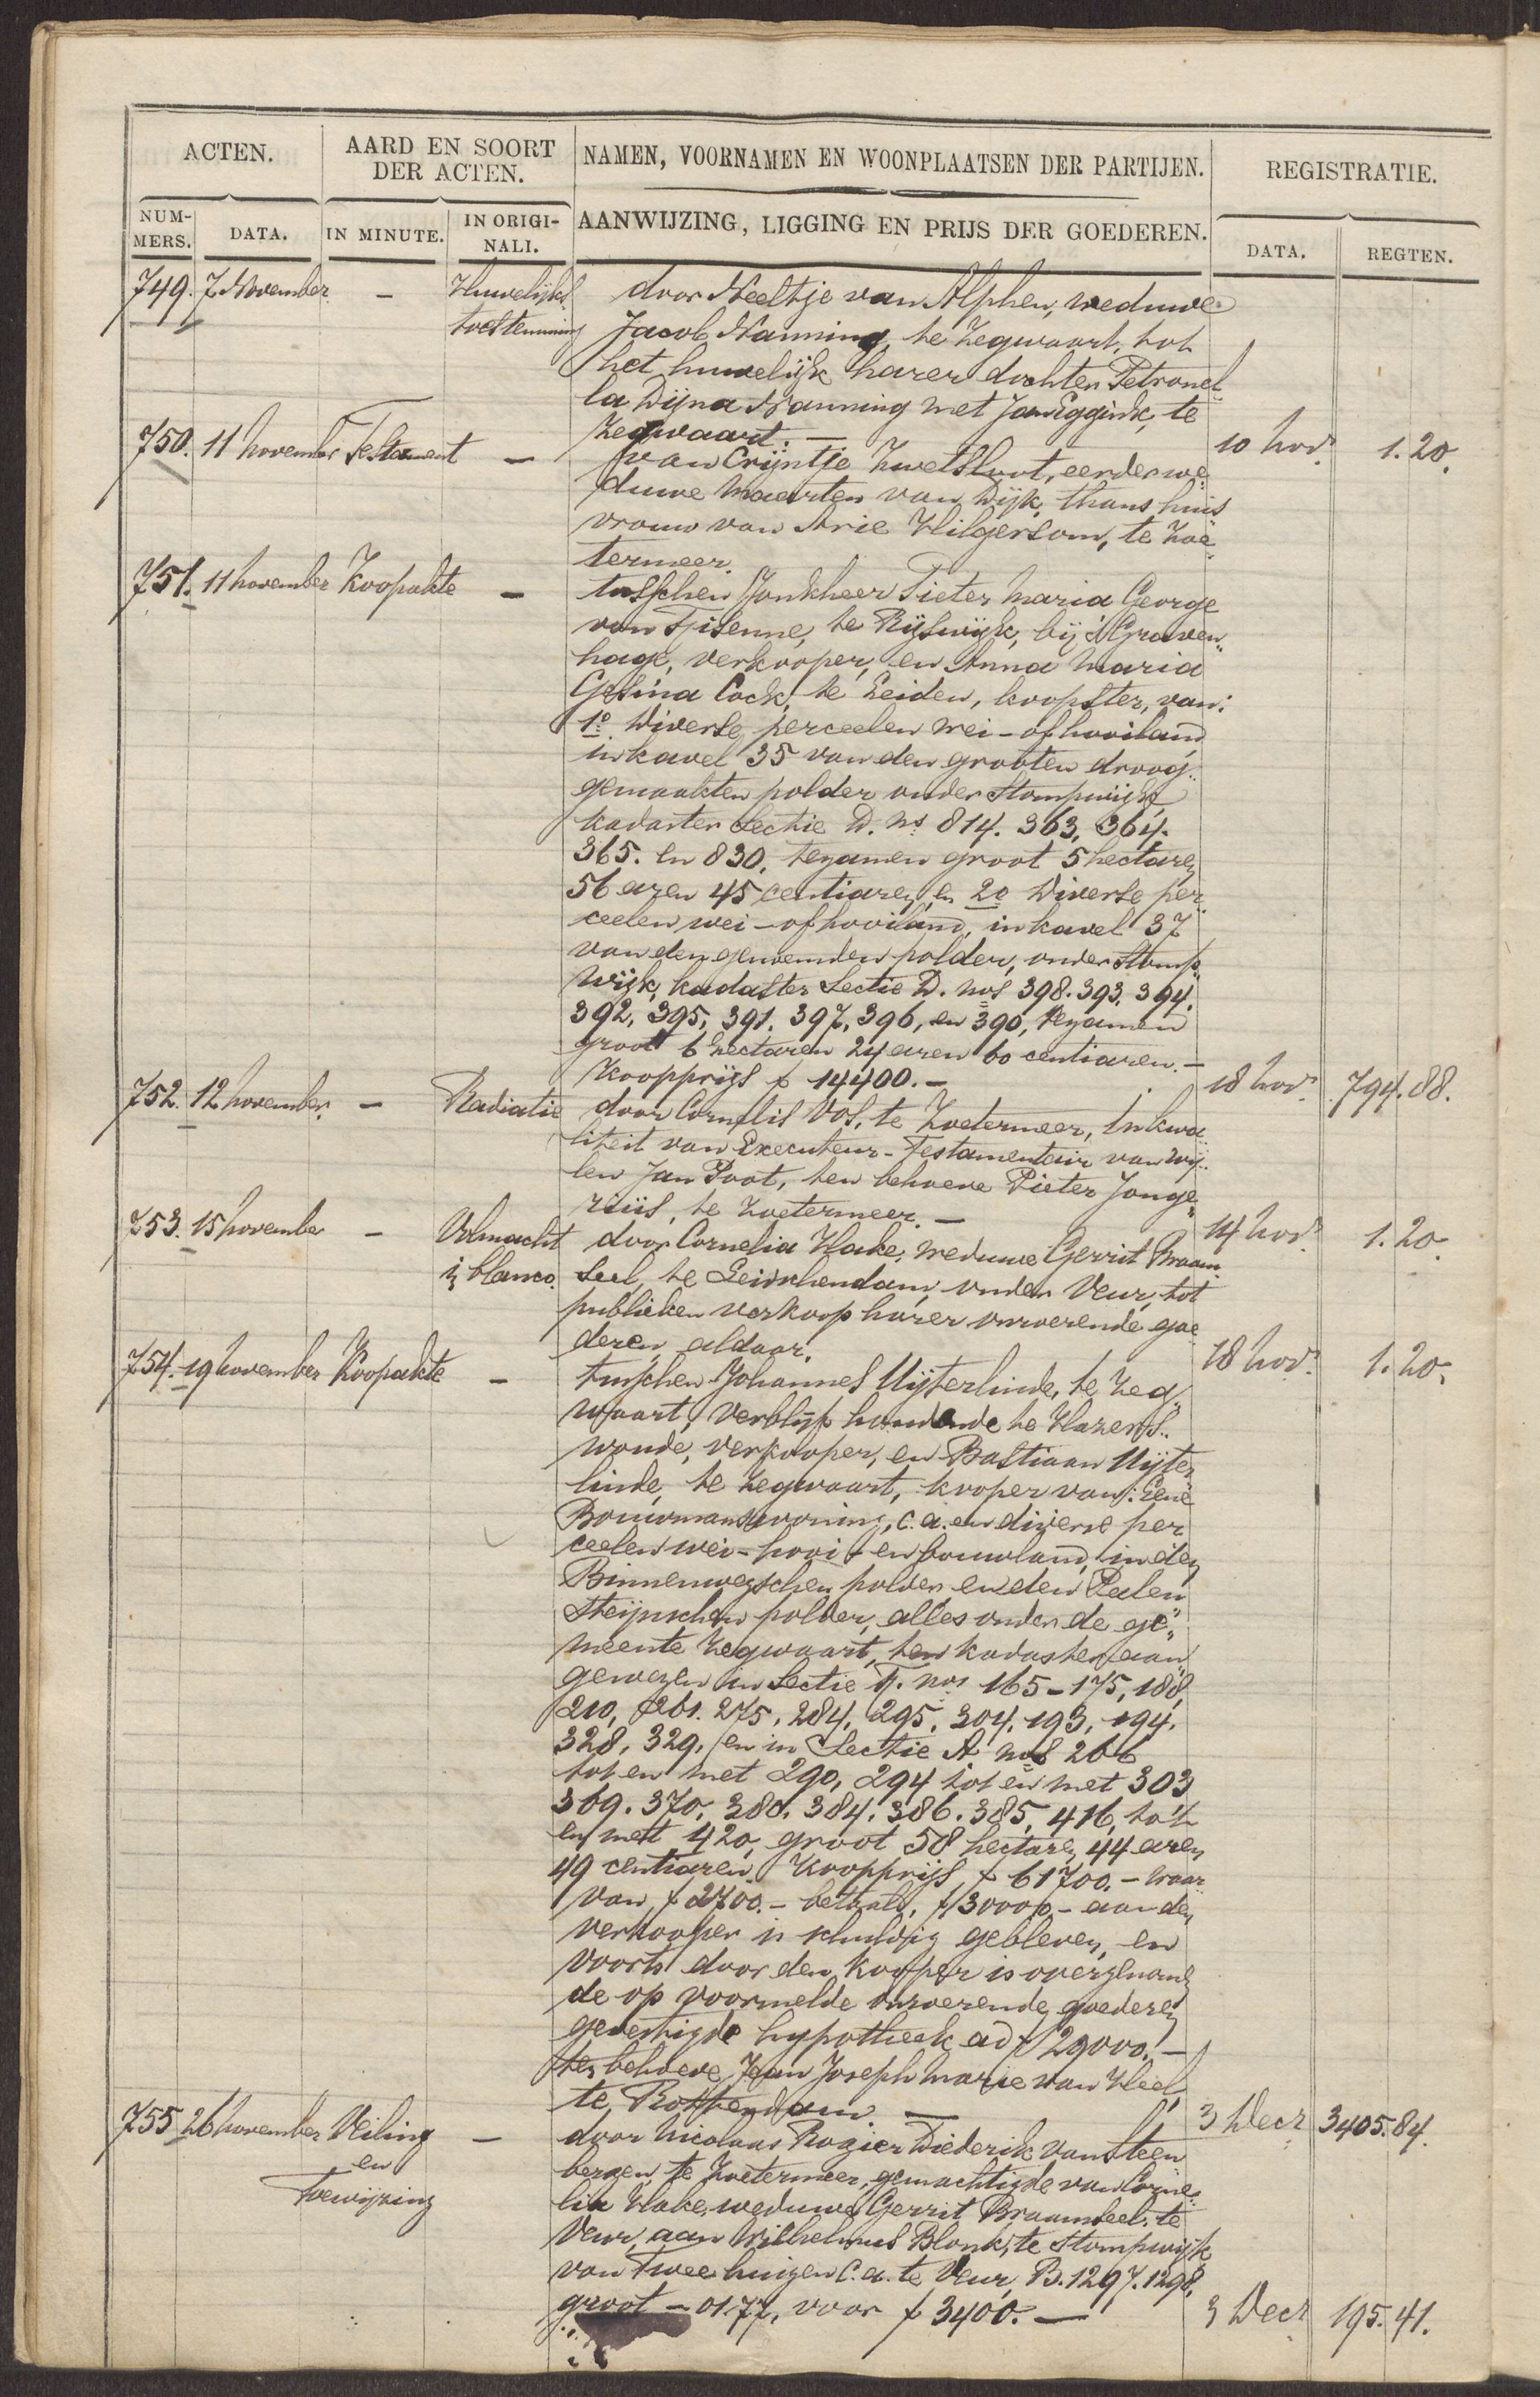 ACTEN.
AARD EN SOORT
DER ACTEN.
NAMEN, VOORNAMEN EN WOONPLAATSEN DER PARTIJEN.
REGISTRATIE.
NUM-
MERS.
DATA.
IN MINUTE.
IN ORIGI-
NALI.
AANWIJZING, LIGGING EN PRIJS DER GOEDEREN.
DATA.
REGTEN.
749. 7 November. – Huwelijks door Neeltje van Alphen, weduwe
toestemming Jacob Nanning, te Zegwaart, tot
het huwelijk harer dochter Petronel„
la Dijna Nanning met Jan Eggink, te
Zegwaart. – 10 novr. 1.20.
750. 11 november Testament – van Crijntje Zwetsloot, eerder we„
duwe Maarten van Dijk, thans huis
vrouw van Arie Hilgersom, te Zoe„
termeer.
751. 11 november Koopakte – tusschen Jonkheer Pieter Maria George
van , te Rijswijk, bij 's Graven„
hage, verkooper, en Anna Maria
Gesina Cock, te Leiden, koopster, van:
1o. Diverse perceelen wei- of hooiland
in kavel 35 van den grooten droog„
gemaakten polder onder Stompwijk,
kadaster Sectie D. ns 814. 363, 364.
365. en 830, tezamen groot 5 hectaren
56 aren 45 centiaren, en 2o Diverse per„
ceelen wei- of hooiland, in kavel 37
van den genoemden polder, onder Stomp„
wijk, kadaster Sectie D. nos 398. 393. 394.
392, 395, 391. 397, 396, en 390, tezamen
groot 6 hectaren 24 aren 60 centiaren. –
Koopprijs f 14400. – 18 novr. 794.88.
752. 12 november. – Radiatie door Cornelis Vos, te Zoetermeer, in kwa„
liteit van Executeur-Testamentair van wij„
len Jan Poot, ten behoeve Pieter Jonge„
rius, te Zoetermeer. – 14 novr. 1.20.
753. 15 november – Volmacht door Cornelia Hake, weduwe Gerrit Braam„
in blanco. seel, te Leidschendam, onder Veur, tot
publieken verkoop harer onroerende goe„
deren aldaar. 18 novr. 1.20.
754. 19 november Koopakte – tusschen Johannes Uijterlinde, te Zeg„
waart, verblijf houdende te Hazers„
woude, verkooper, en Bastiaan Uijter
linde, te Zegwaart, kooper van: Eene
Bouwmanswoning, c.a. en diverse per
ceelen wei- hooi- en bouwland, in den
Binnenwegschen polder en den Palen
steijnschen polder, alles onder de ge„
meente Zegwaart, ten kadaster aan„
gewezen in Sectie F. nos 165–175, 188,
210, 261. 275, 284, 295, 304, 193, 194.
328, 329, en in Sectie A nos 266
tot en met 290, 294 tot en met 303
369. 370, 380, 384. 386. 385, 416, tot
en met 420, groot 58 hectaren 44 aren
49 centiaren. Koopprijs f 61700. – waar„
van f 2700. – betaald, f 30000 – aan den
verkooper is schuldig gebleven, en
voorts door den kooper is overgenomen
de op voormelde onroerende goederen
gevestigde hypotheek ad f 29000. –
ten behoeve Jean Joseph Marie van Heel,
te Rotterdam. – 3 Decr 3405.84.
755 26 november Veiling – door Nicolaas Rogier Diederik van Steen
en bergen, te Zoetermeer, gemachtigde van Corne„
Toewijzing lia Hake, weduwe Gerrit Braamseel, te
Veur, aan Wilhelmus Blonk, te Stompwijk
van Twee huizen c.a. te Veur, B. 1297. 1298,
groot – 01.77, voor f 3400. – 3 Decr 195.41.